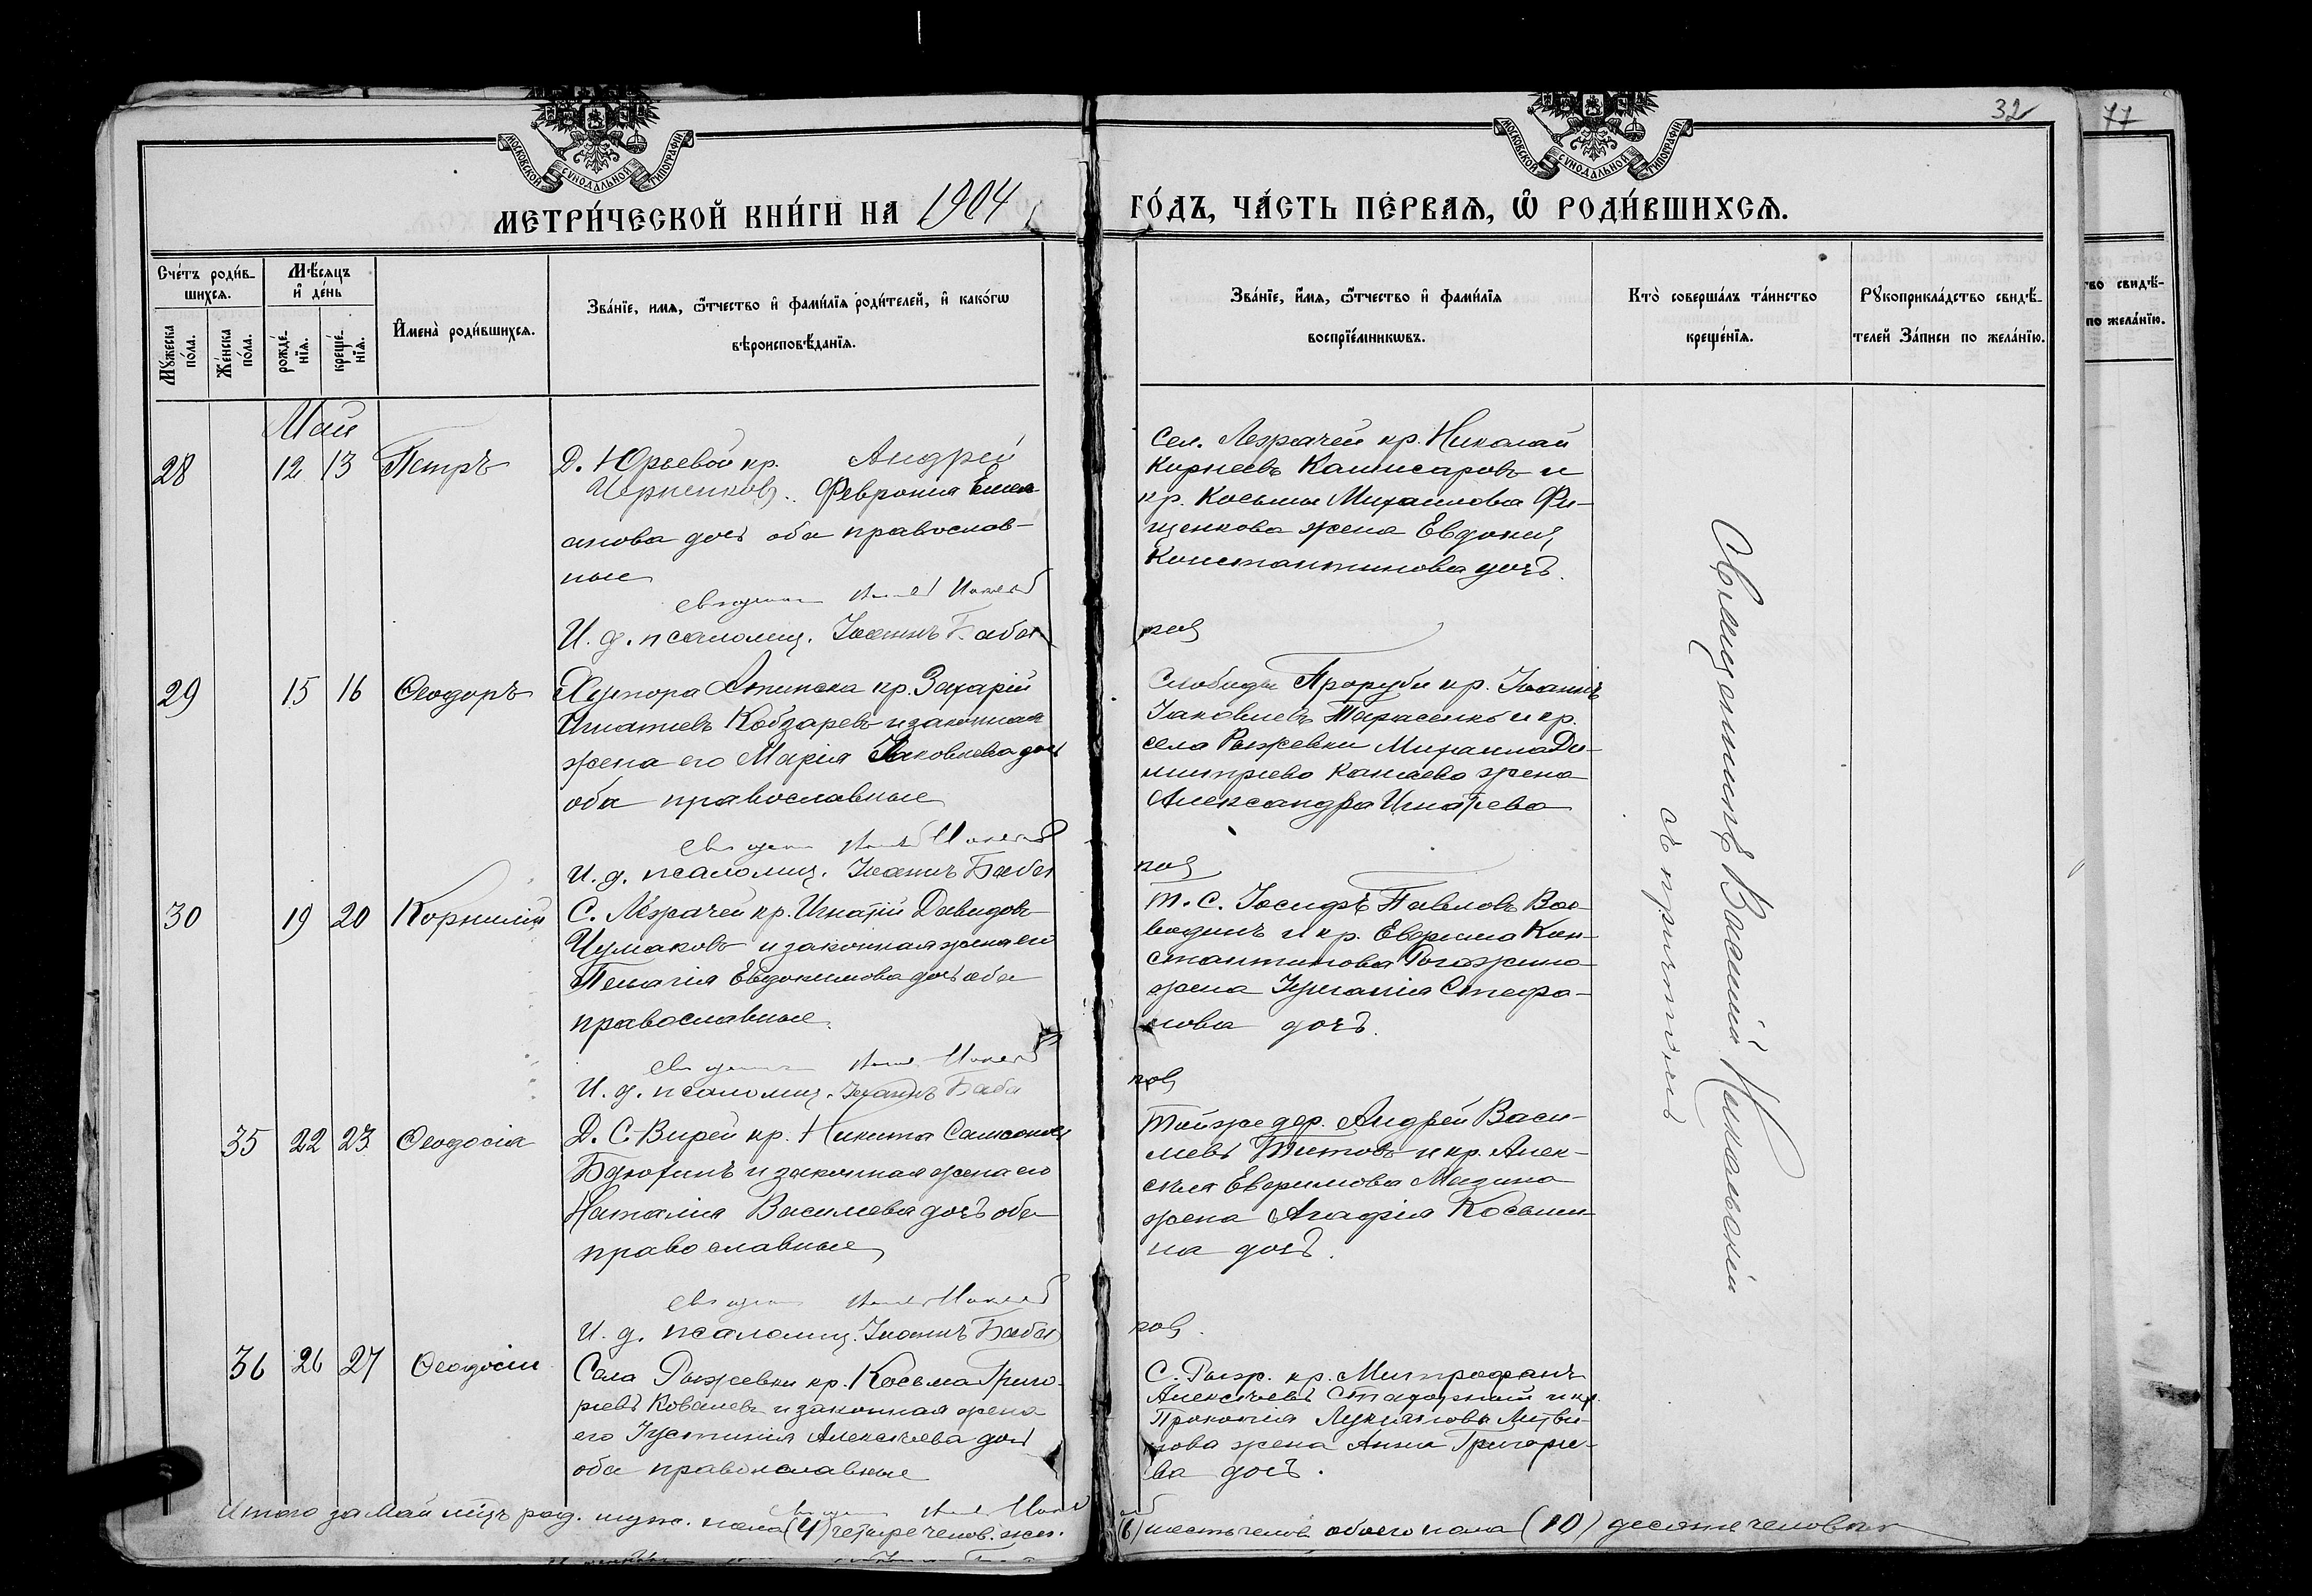 32
77
МОСКОВСКОЙ СѴНОДАЛЬНОЙ ТИПОГРАФІИ
МОСКОВСКОЙ СѴНОДАЛЬНОЙ ТИПОГРАФІИ
МЕТРИ́ЧЕСКОЙ КНИ́ГИ НА 1904
ГО́ДЪ, ЧА́СТЬ ПЕ́РВАѦ, Ѡ҆ РОДИ́ВШИХСѦ.
Сче́тъ роди́в-
шихсѧ.
Мꙋ́жеска
по́ла.
Же́нска
по́ла.
Мѣ́сѧцъ
и҆ де́нь
рожде́-
нїѧ.
креще́-
нїѧ.
И҆мена̀ роди́вшихсѧ.
Зва́нїе, имѧ, ѿтчество и҆ фами́лїѧ роди́телей, и҆ како́гѡ
вѣроисповѣ́данїѧ.
Зва́нїе, и҆́мѧ, ѿтчество и҆ фами́лїѧ
воспрїе́мникѡвъ.
Кто̀ соверша́лъ та́инство
креще́нїѧ.
Рꙋкоприкла́дство свидѣ́-
телей За́писи по жела́нїю.
тво свидѣ́-
по жела́нїю.
Май
28 12 13 Петръ
Д. Юрьевой кр. Андрей
Черненков. Феврония Емел
анова дочь оба православ-
ные
И. д. псаломщ. Іоаннъ Баба
Сел. Лежачей кр. Николай
Корнеевъ Камисаровъ и
кр. Косьмы Михаилова Фи-
щенкова жена Евдокия
Константинова дочь.
ков
29 15 16 Ѳеодоръ
Хутора кр. Захарій
Игнатіевъ Кобзаревъ и законная
жена его Марія Іаковлева дочь
оба православные
И. д. псаломщ. Іоаннъ Баба
Слободы Проруби кр. Іоаннъ
Іаковлевъ Тарасенко и кр.
села Рыжевки Михаила Ди-
митріева жена
Александра Игнатева
ков
30 19 20 Корнилій
С. Лежачей кр. Игнатій Давидовъ
Чумаковъ и законная жена его
Пелагія Евдокимова дочь оба
православные.
И. д. псаломщ. Іоаннъ Баба
т. с. Іосифъ Павловъ Вое-
водинъ и кр. Евфима Кон-
стантинова Рогожина
жена Іуліанія Стефа-
нова дочь.
ков
35 22 23 Ѳеодосія
Д. С. Вирей кр. Никита Самсоновъ
и законная жена его
Наталия Василиева дочь оба
православные
И. д. псаломщ. Іоаннъ Баба
Тойже дер. Андрей Васи-
лиевъ Титовъ и кр. Алек-
сѣя Евфимова Мазина
жена Агафия Косьми-
на дочь.
ков.
36 26 27 Ѳеодосія
Села Рыжевки кр. Косьма Григо-
риевъ Ковалевъ и законная жена
его Іустинія Алексѣева дочь
оба православные
С. Рыж. кр. Митрофанъ
Алексѣевъ и кр.
Прокопія Лукіанова Литви-
нова жена Анна Григорие-
ва дочь.
Священникъ Василій
съ причтомъ
Итого за Май мцъ род. муж. пола (4) четыре челов. жен.
(6) шесть челов. обоего пола (10) десять человѣкъ